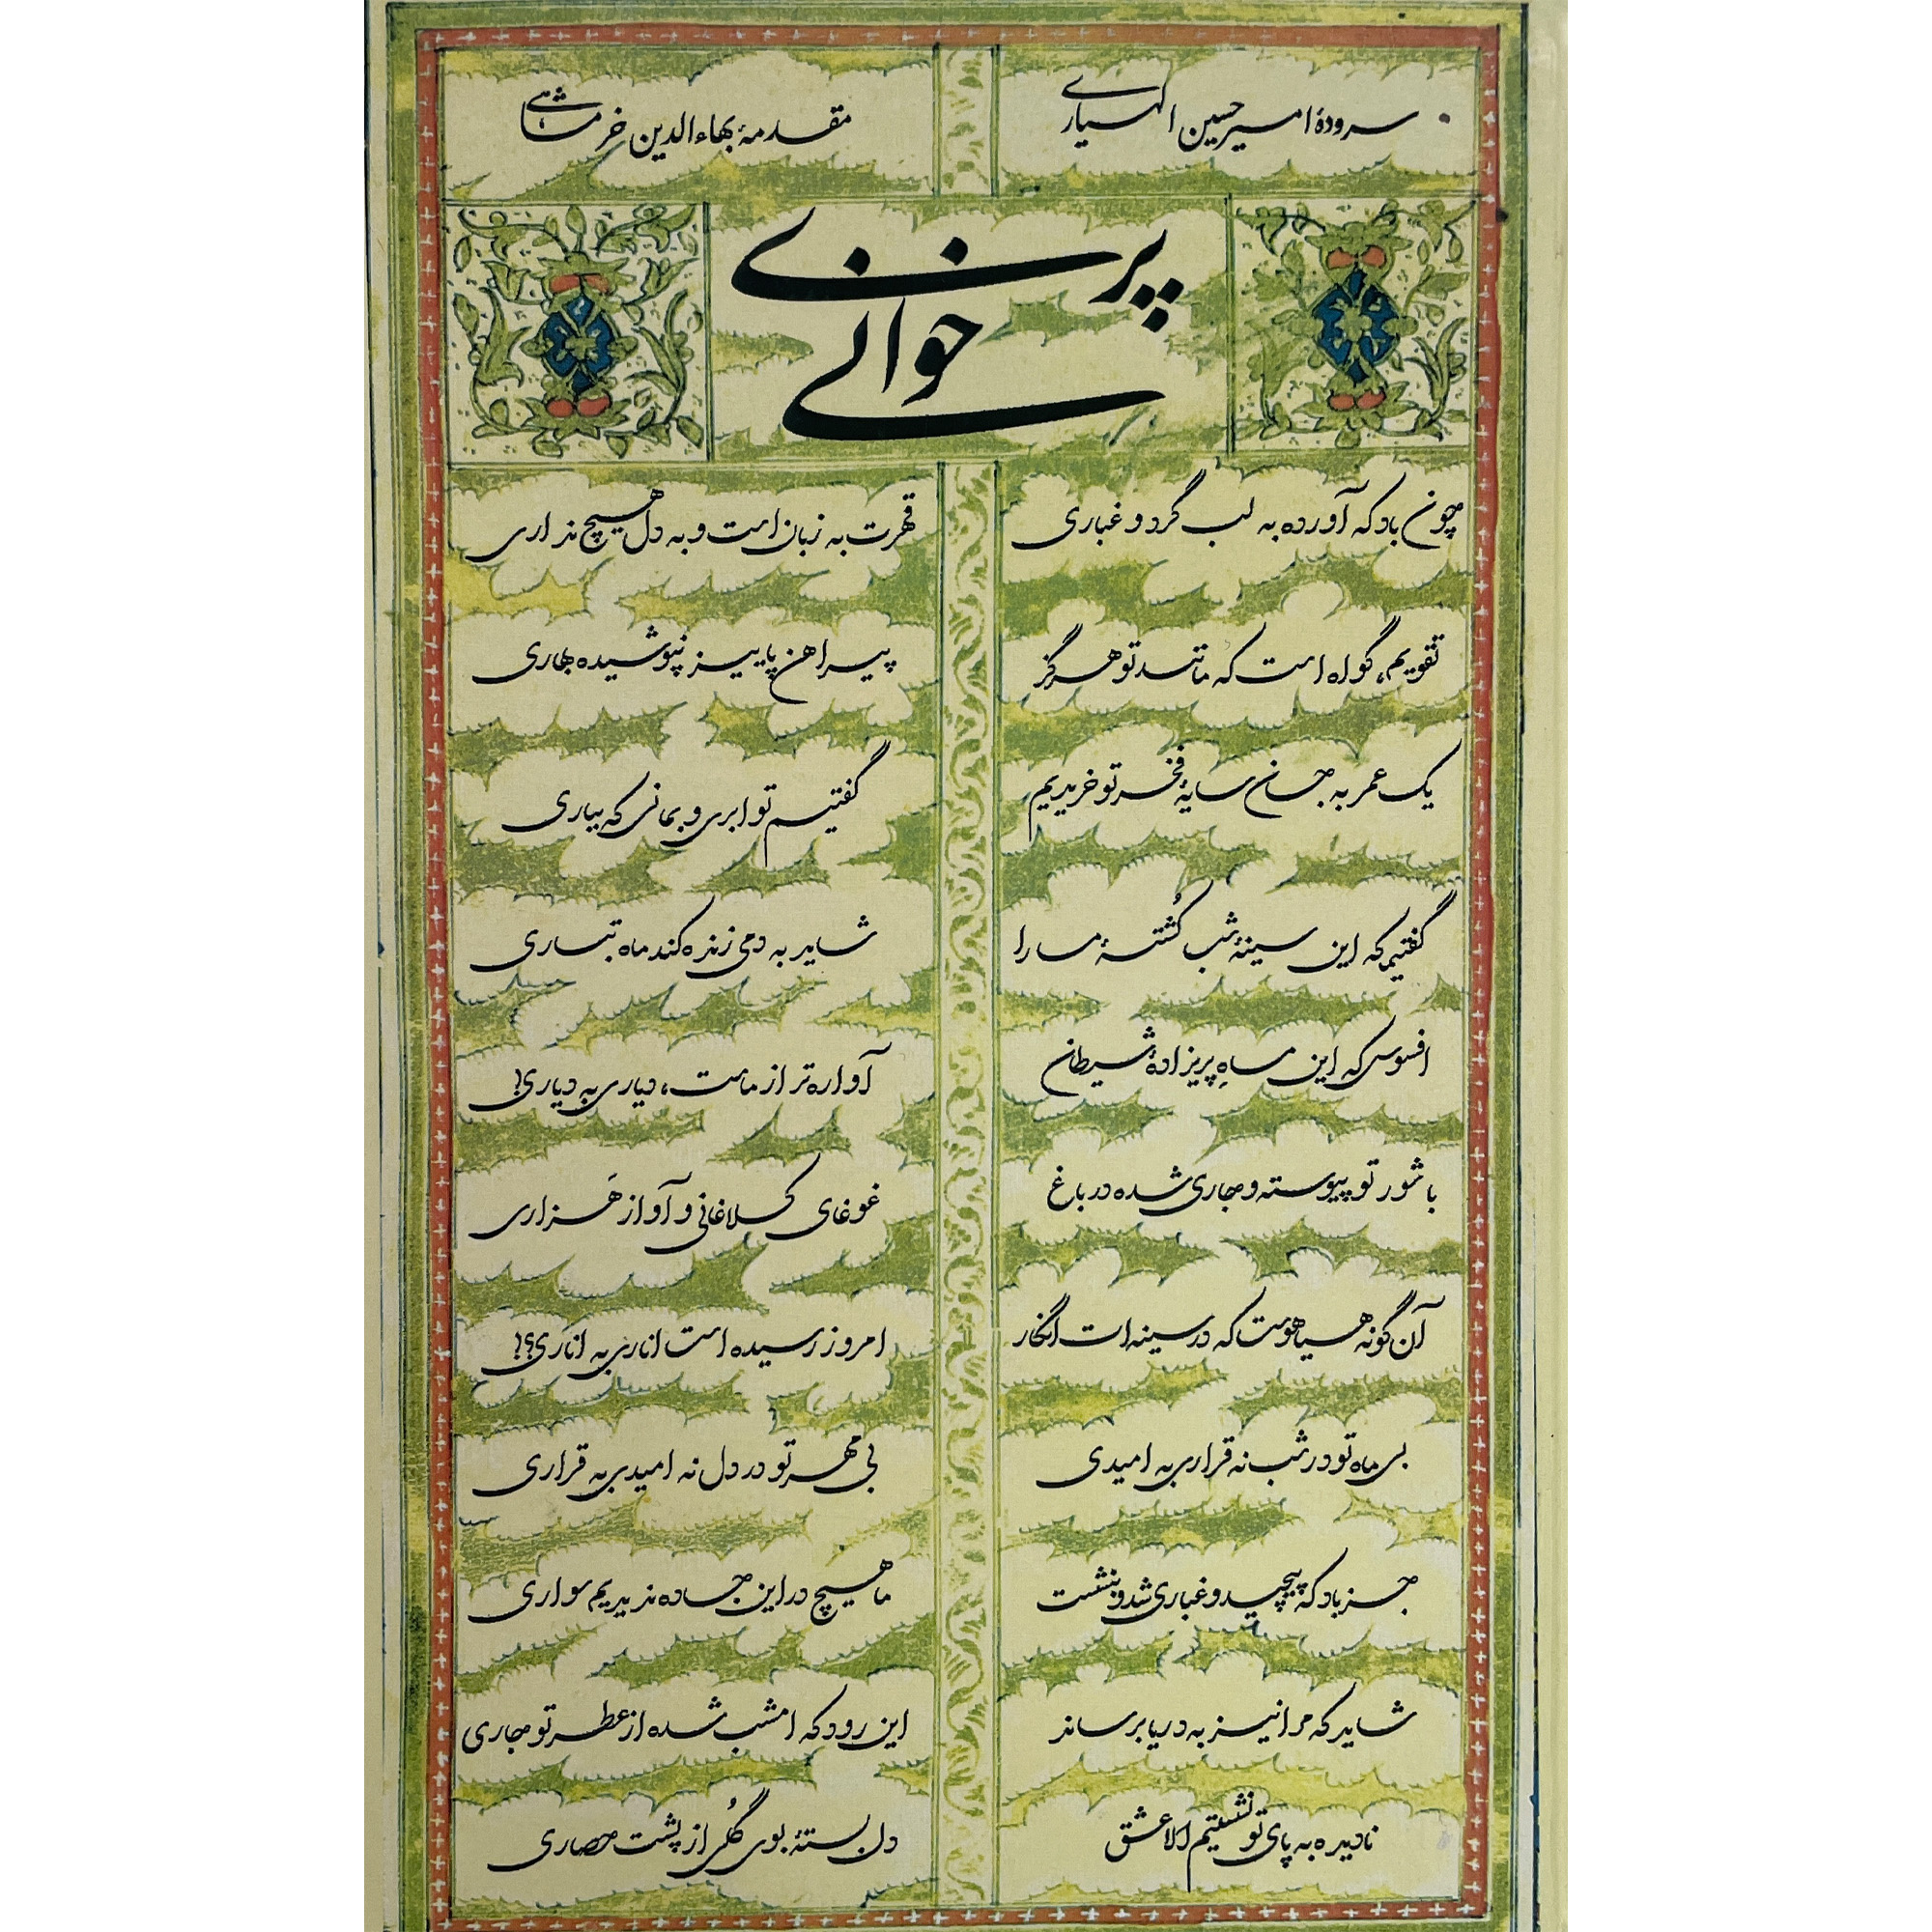 سرودهٔ امیرحسین الهیاری
مقدمهٔ بهاءالدین خرمشاهی
پرنده‌ی
خوانی
چون باد که آورده به لب گرد و غباری
قهرت به زبان است و به دل هیچ نداری
تقویم، گواه است که مانند تو هرگز
پیراهن پاییز نپوشیده بهاری
یک عمر به جان سایهٔ فخر تو خریدیم
گفتیم تو ابری و بمانی که بباری
گفتیم که این سینهٔ شب کُشتهٔ ما را
شاید به دمی زنده کند ماه تباری
افسوس که این ماهِ پریزادهٔ شیطان
آواره‌تر از ماست، دیاری به دیاری!
با شور تو پیوسته و جاری شده در باغ
غوغای کلاغانی و آواز هَزاری
آن گونه هیاهوست که در سینه‌ات انگار
امروز رسیده است اناری به اناری؟!
بی ماه تو در شب نه قراری به امیدی
بی مهر تو در دل نه امیدی به قراری
جز باد که پیچید و غباری شد و ننشست
ما هیچ در این جاده ندیدیم سواری
شاید که مرا نیز به دریا برساند
این رود که امشب شده از عطر تو جاری
نادیده به پای تو نشستیم الا عشق
دل بستهٔ بوی گُلی از پشت حصاری